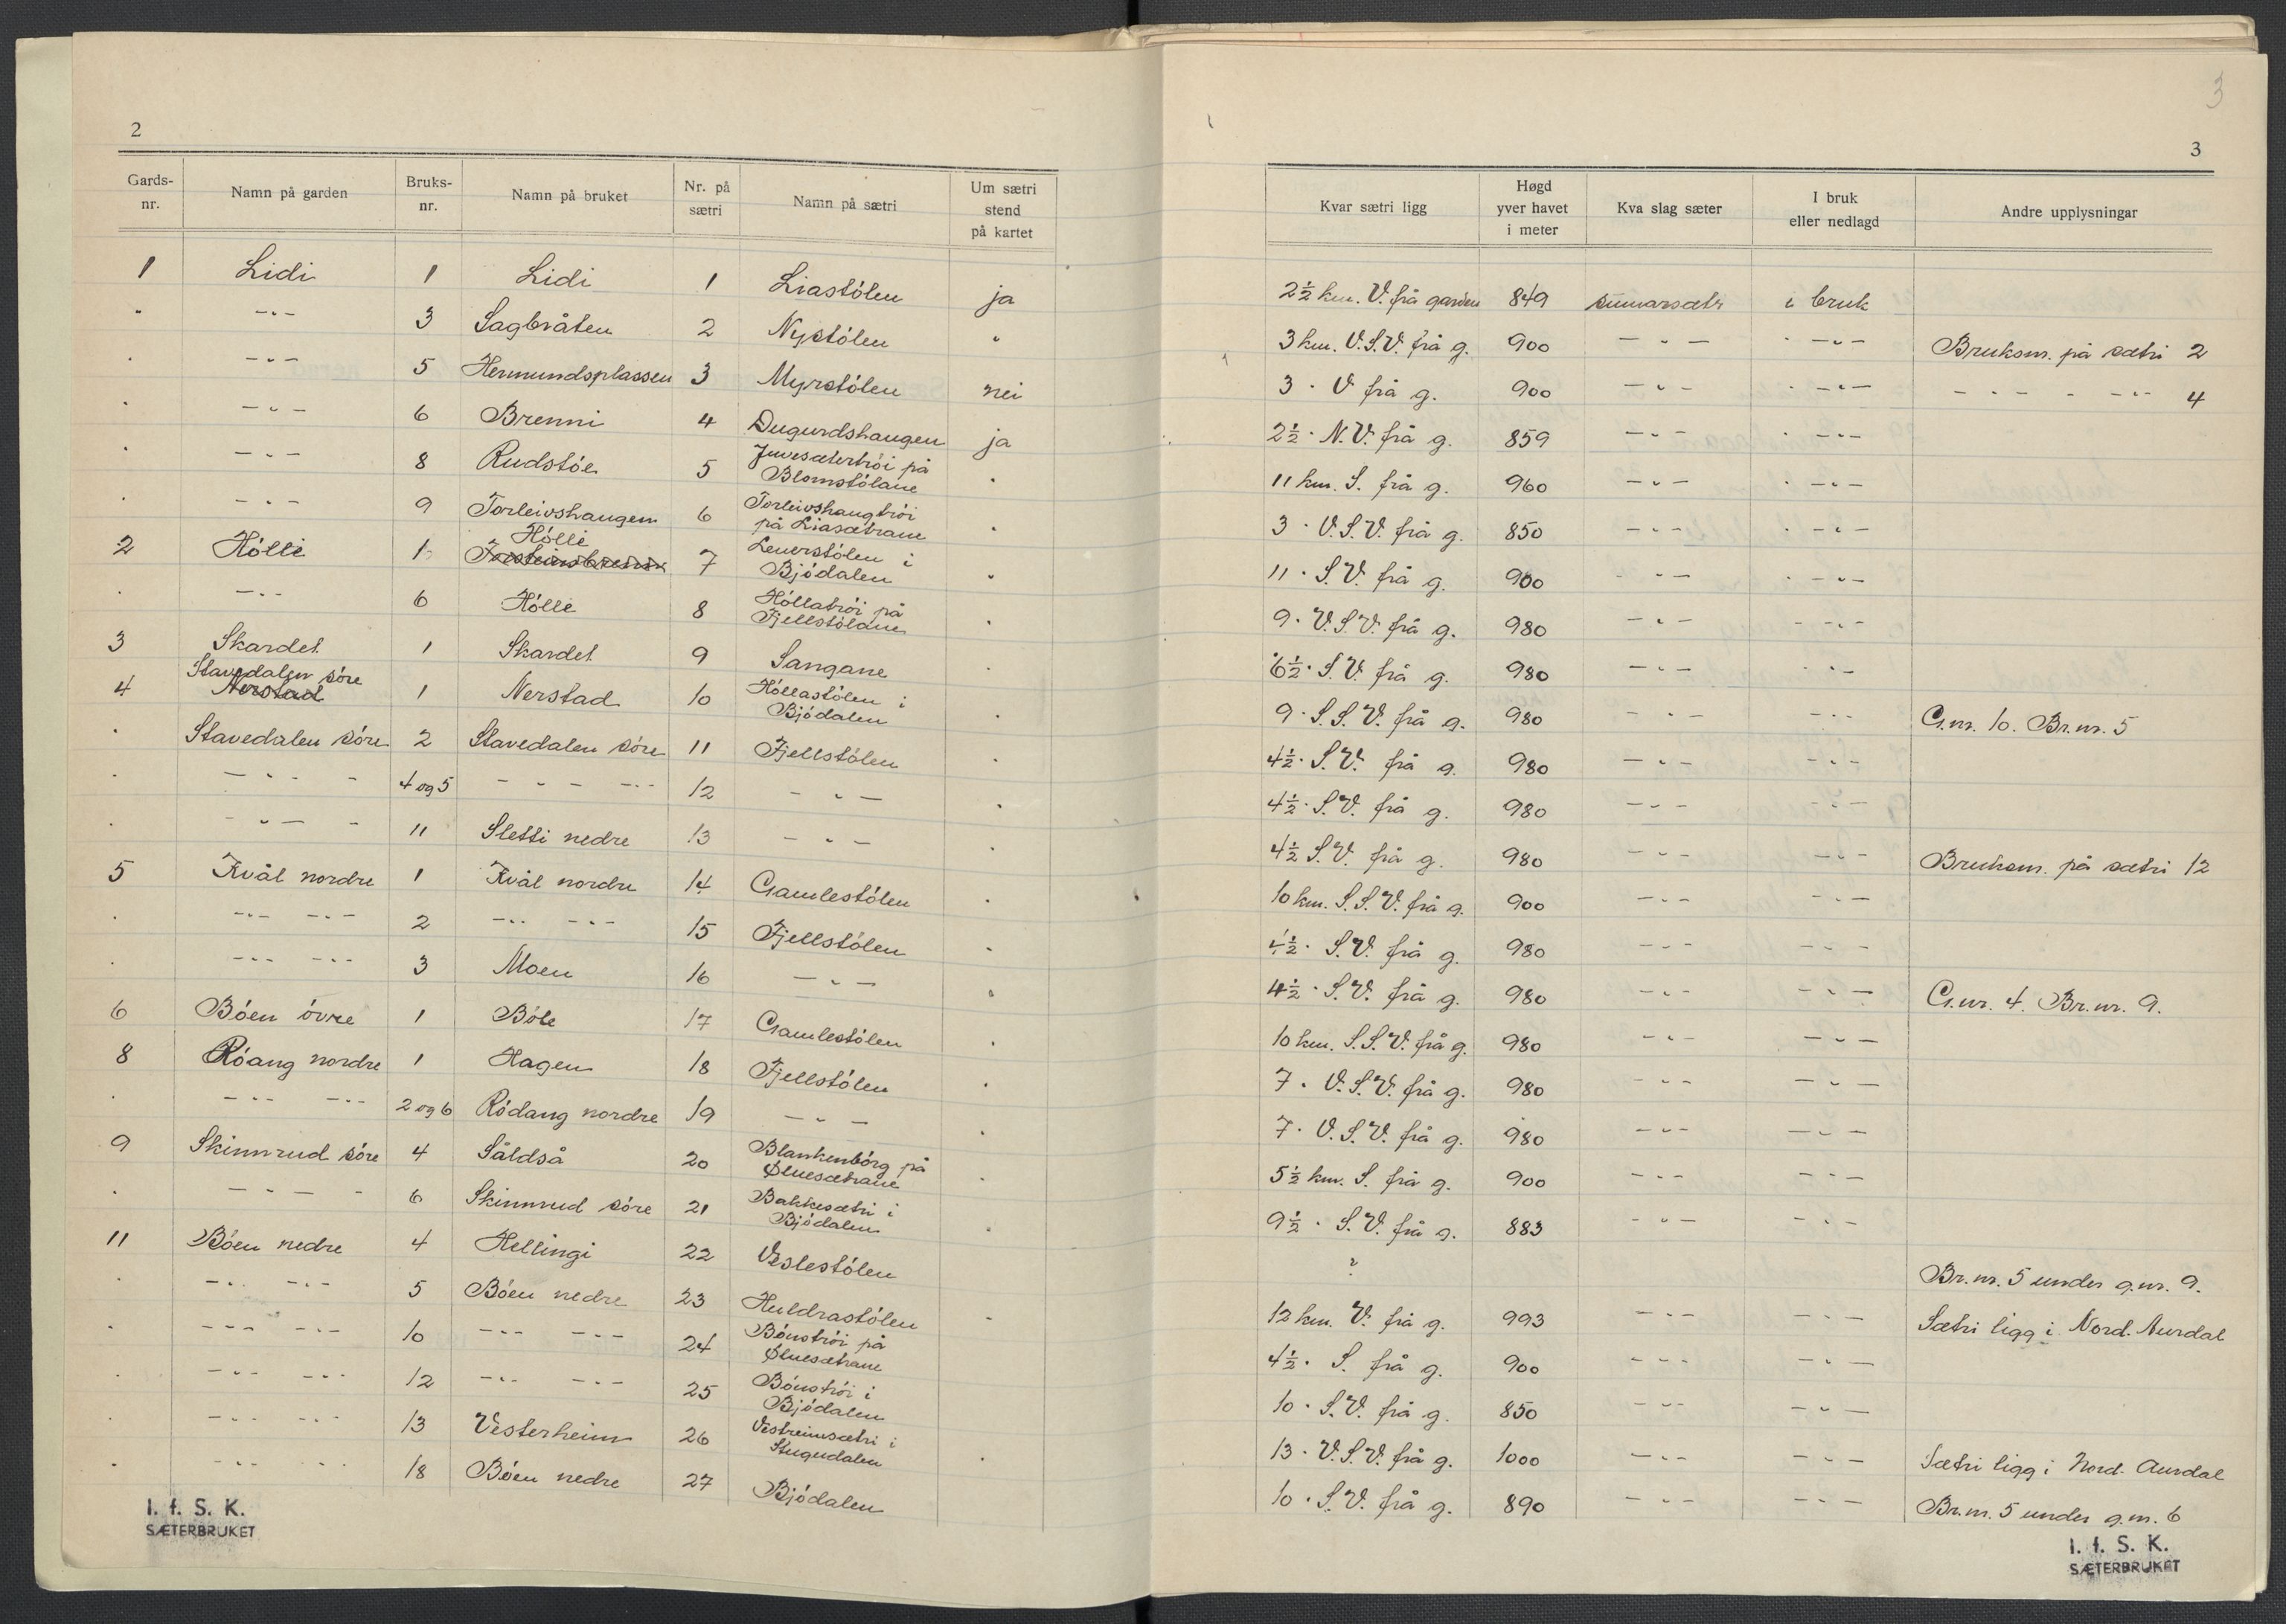 2
Gards-nr. Namn på garden Bruks-nr. Namn på bruket Nr. på sætri Namn på sætri Um sætri stend på kartet
1 Lidi 1 Lidi 1 Liastólen ja
" -"- 3 Sagbråten 2 Nystólen "
" -"- 5 Hermundsplassen 3 Myrstólen nei
" -"- 6 Brenni 4 Dugurdshaugen ja
" -"- 8 Rudstóe 5 Juvesæterbrói på Blomstólane "
" -"- 9 Torleivshaugen 6 Torleivshaugtrói på Liasætrane "
2 Hólli 1 Hólli 7 Leverstólen i Bjódalen "
" -"- 6 Hólli 8 Hóllatrói på Fjellstólane "
3 Skardet 1 Skardet 9 Sangane "
4 Stavedalen sóre Nerstad 1 Nerstad 10 Hóllastólen i Bjódalen "
" Stavedalen sóre 2 Stavedalen sóre 11 Fjellstólen "
" -"- - 4 og 5 - - - -"- 12 -"- "
" -"- - 11 Sletti nedre 13 -"- "
5 Kvål nordre 1 Kvål nordre 14 Gamlestólen "
" -"- -"- 2 -"- -"- 15 Fjellstólen "
" -"- -"- 3 Moen 16 -"- "
6 Bóen óvre 1 Bóle 17 Gamlestólen "
8 Róang nordre 1 Hagen 18 Fjellstólen "
" -"- -"- 2 og 6 Ródang nordre 19 -"- "
9 Skinnrud sóre 4 Såldså 20 Blankenbórg på Øluesætrane "
" - - - - 6 Skinnrud sóre 21 Bakkesætri i Bjódalen "
11 Bóen nedre 4 Hellingi 22 Veslestólen
" -"- -"- 5 Bóen nedre 23 Huldrastólen "
" -"- -"- 10 -"- -"- 24 Bónstrói på Øluesætrane
" -"- -"- 12 -"- -"- 25 Bónstrói i Bjódalen
" -"- -"- 13 Vesterheim 26 Vestreimsætri i Stugudalen "
" -"- -"- 18 Bóen nedre 27 Bjódalen
I. f. S. K.
SÆTERBRUKET
3
3
Kvar sætri ligg Høgd yver havet i meter Kva slag sæter I bruk eller nedlagd Andre upplysningar
2½ km. V. frå garden 849 sumarsætr i bruk
3 km. V.S.V. frå g. 900 -"- " -"- Bruksnr. på sætri 2
3 " V frå g. 900 -"- " -"- -"- - -"- 4
2½ " N.V. frå g. 859 -"- " -"-
11 km. S. frå g. 960 -"- " -"-
3 " V.S.V. frå g. 850 -"- " -"-
11 " S.V. frå g. 900 -"- " -"-
9 " V.S.V. frå g. 980 -"- -"-
6½ " S.V. frå g. 980 -"- -"-
9 " S.S.V. frå g. 980 -"- -"- G.nr. 10. Br.nr. 5
4½ " S.V. frå g. 980 -"- -"-
4½ " S.V. frå g. 980 -"- -"-
4½ S.V. frå g. 980 -"- -"- Bruksnr. på sætri 12
10 km. S.S.V. frå g. 900 -"- -"-
4½ " S.V. frå g. 980 -"- -"-
4½ " S.V. frå g. 980 -"- -"- G.nr. 4. Br.nr. 9.
10 km. S.S.V. frå g. 980 -"- -"-
7 " V.S.V. frå g. 980 -"- -"-
7 " V.S.V. frå g. 980 -"- -"-
5½ km. S. frå g. 900 -"- -"-
9½ " S.V. frå g. 883 -"- -"-
? Br.nr. 5 under g.nr. 9.
12 km. V. frå g. 993 -"- -"- Sætri ligg i Nord. Aurdal
4½ " S. frå g. 900 -"- -"-
10 " S.V. frå g. 850 -"- -"-
13 " V.S.V. frå g. 1000 -"- -"- Sætri ligg i Nord. Aurdal
10 " S.V. frå g. 890 -"- -"- Br.nr. 5 under g.nr. 6
I. f. S. K.
SÆTERBRUKET